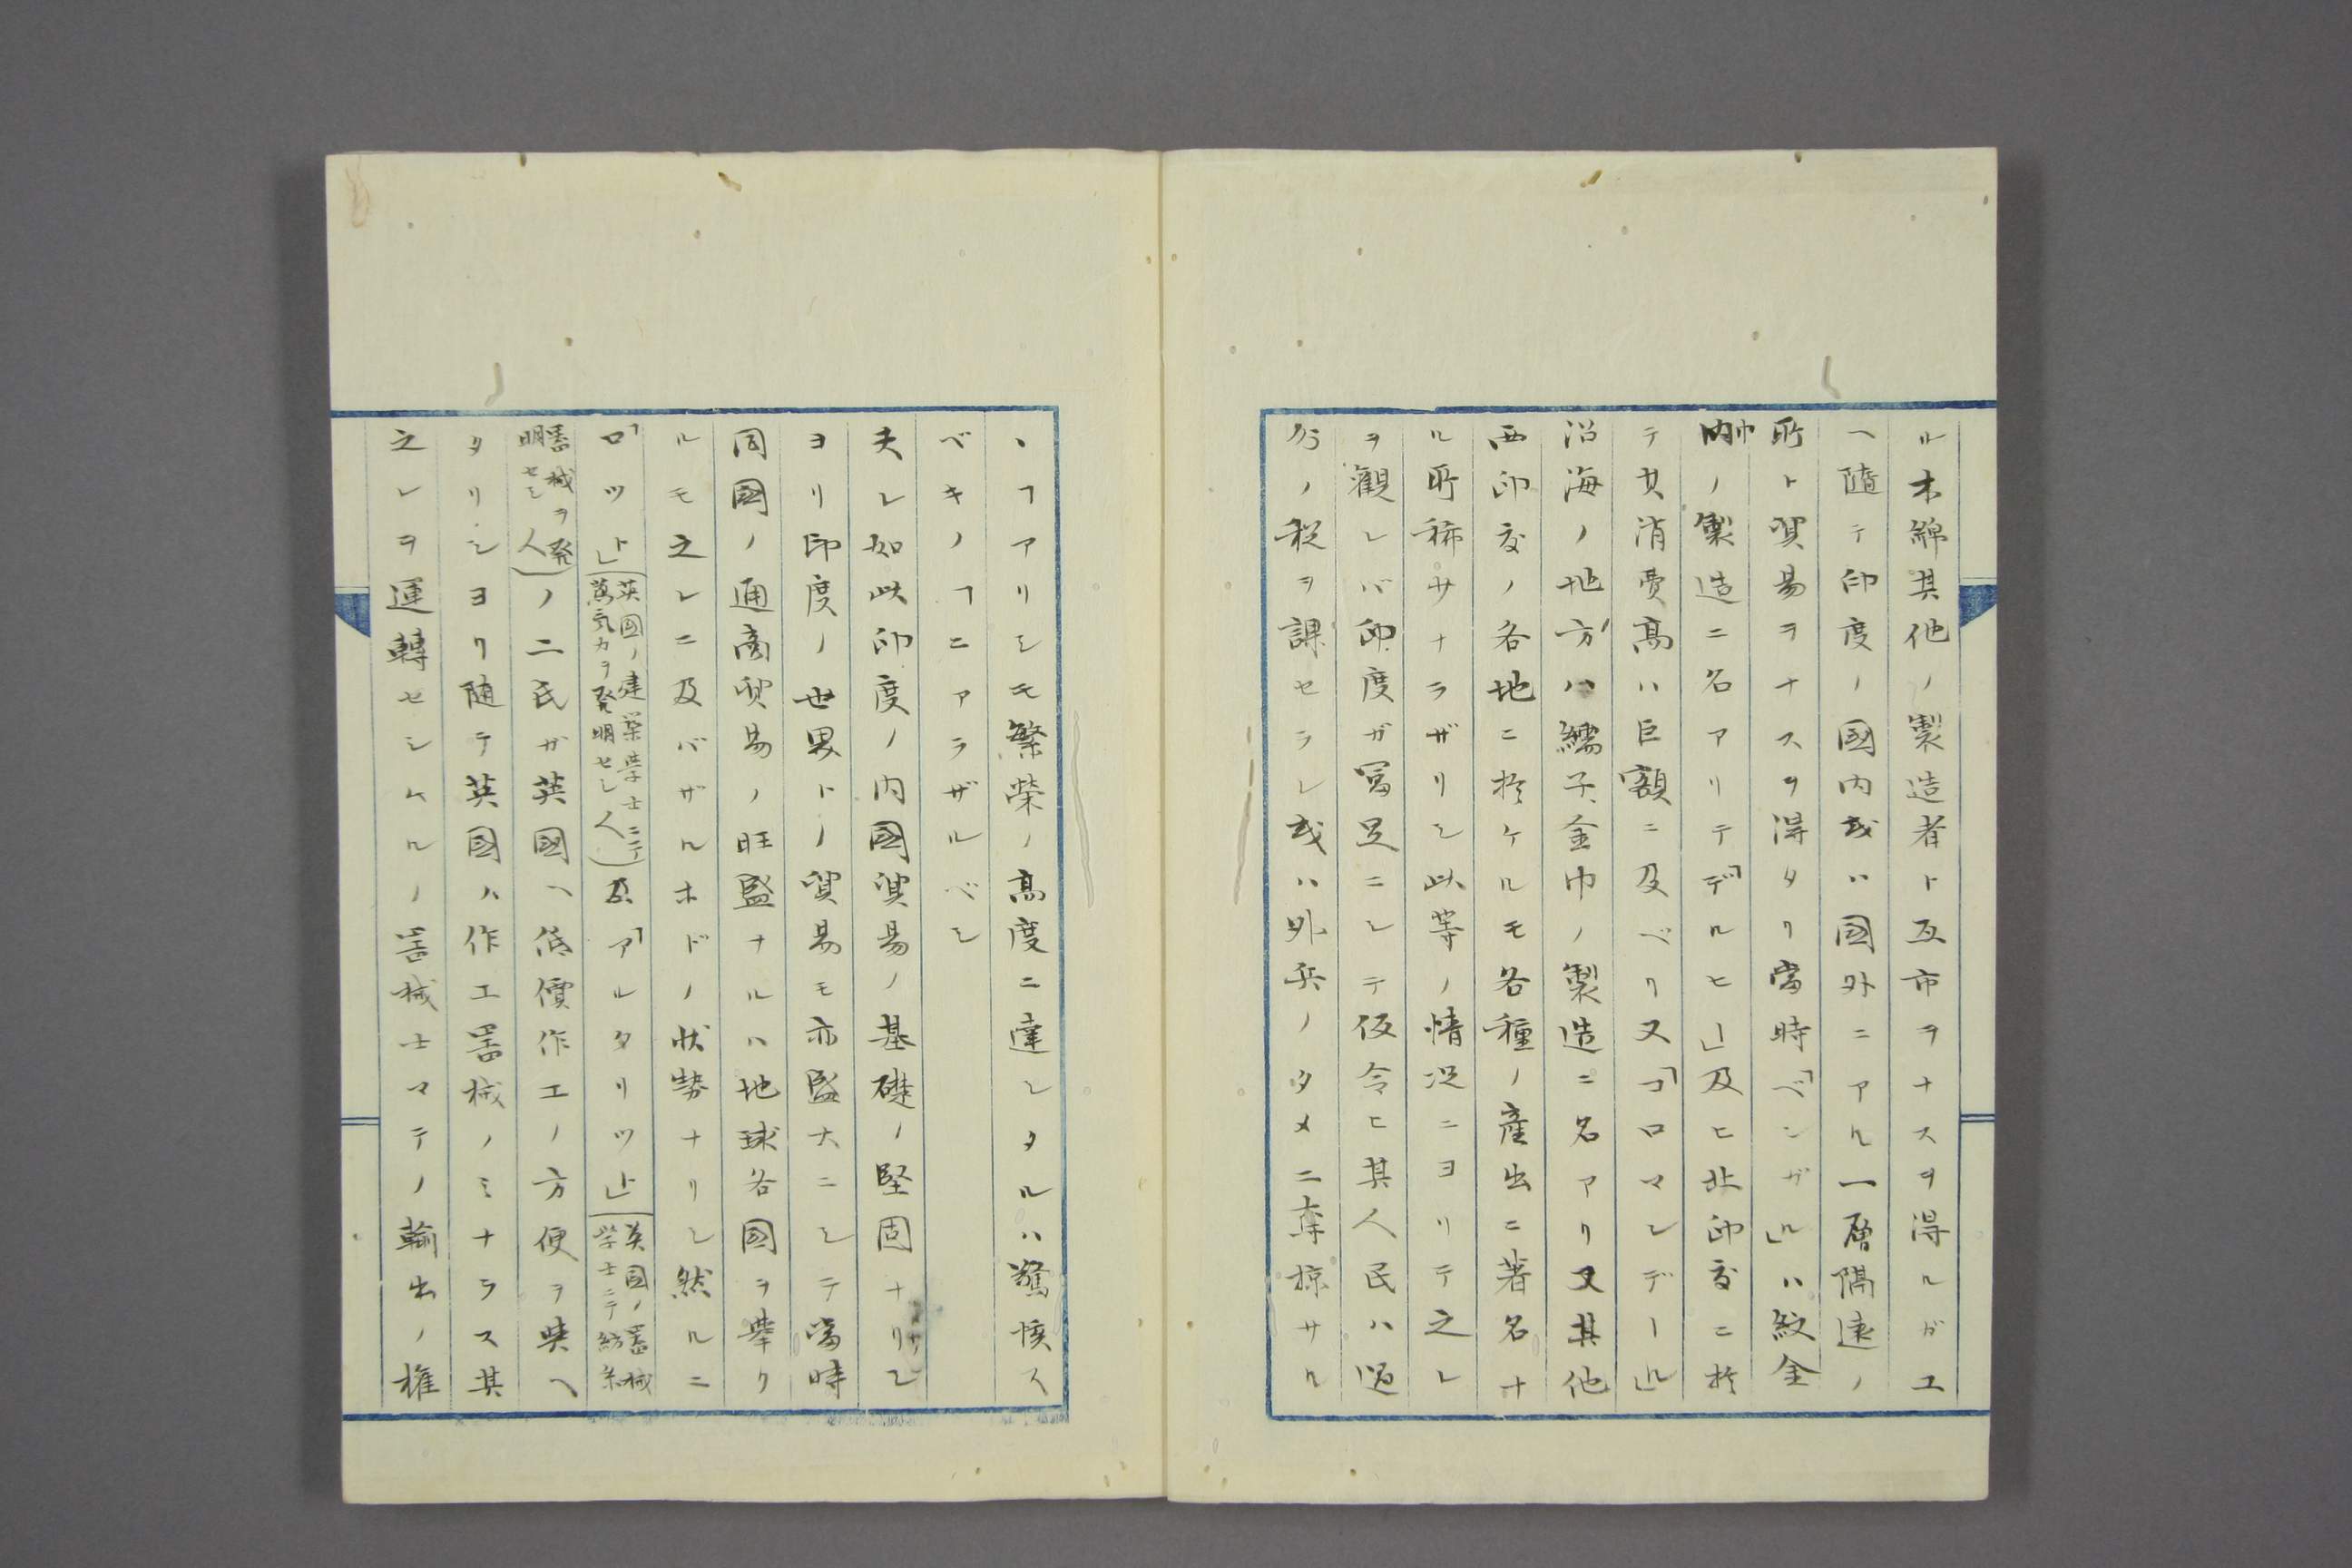 ル木綿其他ノ製造者ト互市ヲナスヲ得ルガユ
ヘ隨テ印度ノ國内或ハ國外ニアル一層隔遠ノ
所ト貿易ヲナスヲ得タリ當時「ベンガル」ハ紋金
巾ノ製造ニ名アリテ「デルヒ」及ヒ北印度ニ於
テ其消費高ハ巨額ニ及ベリ又「コロマンデール」
沿海ノ地方ハ繻子金巾ノ製造ニ名アリ又其他
西印度ノ各地ニ於ケルモ各種ノ産出ニ著名ナ
ル所稀サナラザリシ此等ノ情況ニヨリテ之レ
ヲ觀レバ印度ガ富足ニシテ仮令ヒ其人民ハ過
分ノ税ヲ課セラレ或ハ外兵ノタメニ奪掠サル
ヽヿアリシモ繁榮ノ高度ニ達シタルハ驚愕ス
ベキノヿニアラザルベシ
夫レ如此印度ノ内國貿易ノ基礎ノ堅固ナリシ
ヨリ印度ノ世界トノ貿易モ亦盛大ニシテ當時
同國ノ通商貿易ノ旺盛ナルハ地球各國ヲ擧ク
ルモ之レニ及バザルホドノ状勢ナリシ然ルニ
「ロツト」(英國ノ建築学士ニテ蒸気力ヲ発明セシ人)及「アルタリツト」(英國ノ噐械学士ニテ紡糸
噐械ヲ発明セシ人)ノ二氏ガ英國ヘ低價作工ノ方便ヲ與ヘ
タリシヨリ随テ英國ハ作工噐械ノミナラス其
之レヲ運轉セシムルノ噐械士マテノ輸出ノ権